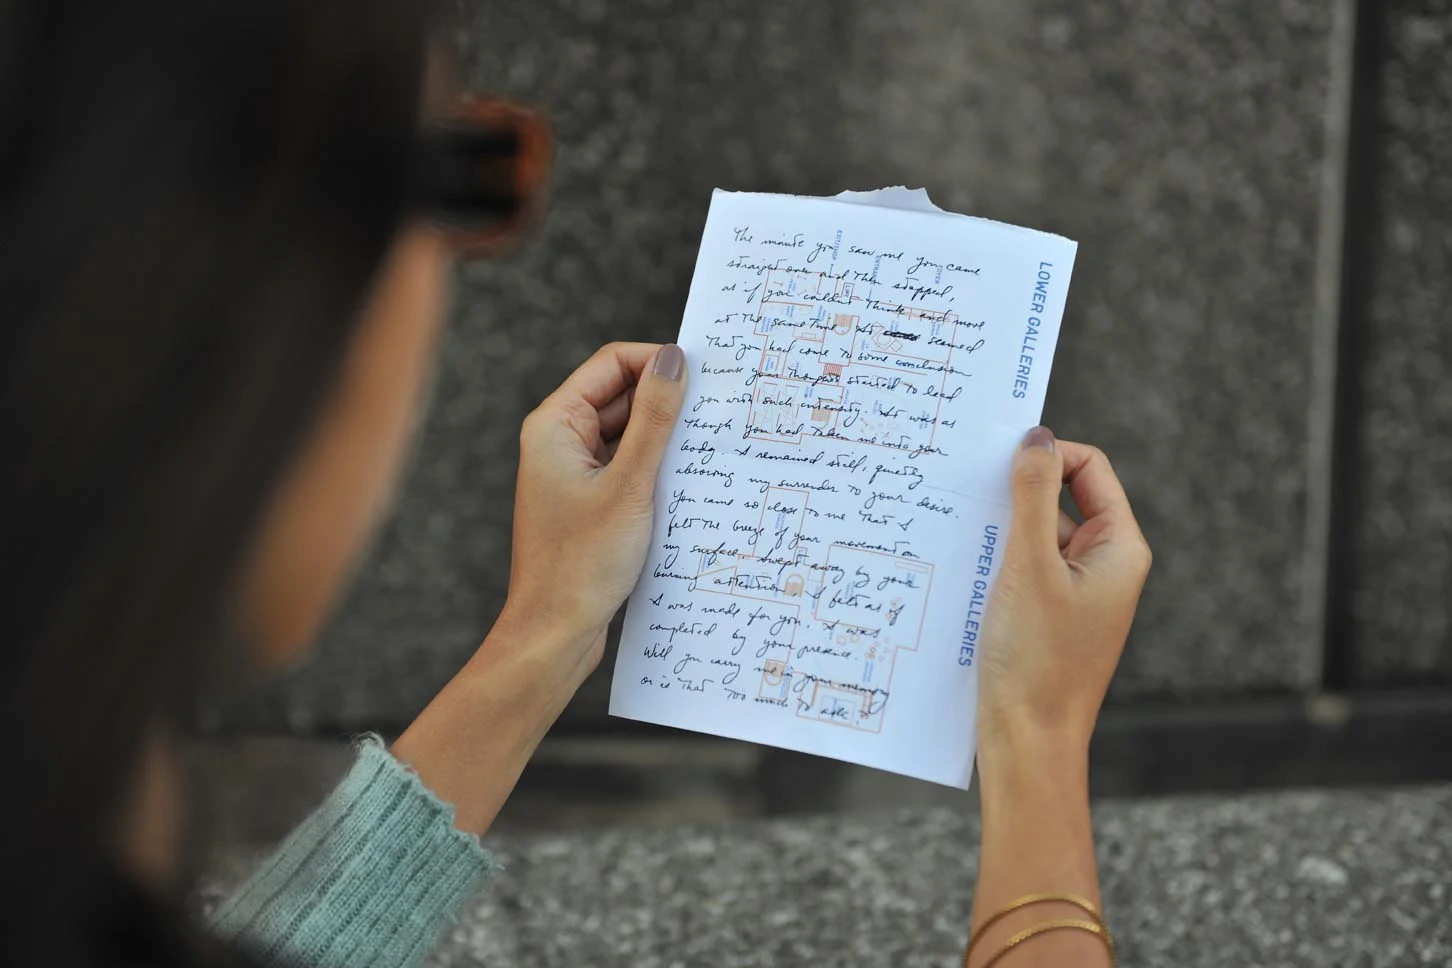 The minute you saw me you came
straight over and then stopped,
as if you couldn't think and move
at the same time. It seemed
that you had come to some conclusion
because your thoughts started to lead
you with such intensity. It was as
though you had taken me into your
body. I remained still, quietly
absorbing my surrender to your desire.
You came so close to me that I
felt the breeze of your movement on
my surface. Swept away by your
burning attention, I felt as if
I was made for you. I was
completed by your presence.
Will you carry me in your memory
or is that too much to ask?
LOWER GALLERIES
UPPER GALLERIES